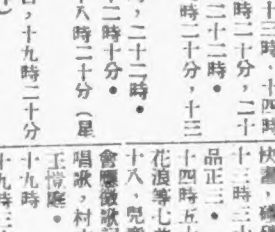 十三時、十四時
時二十分，二十
二十二時。
時二十分，十三
，二十二時。
二時十分。
八時二十分（星
，十九時二十分
十三時
品正三。
十四時五十
花浪等七
十八、兒
會廳徵歌
唱歌，村
十九時
十九時三